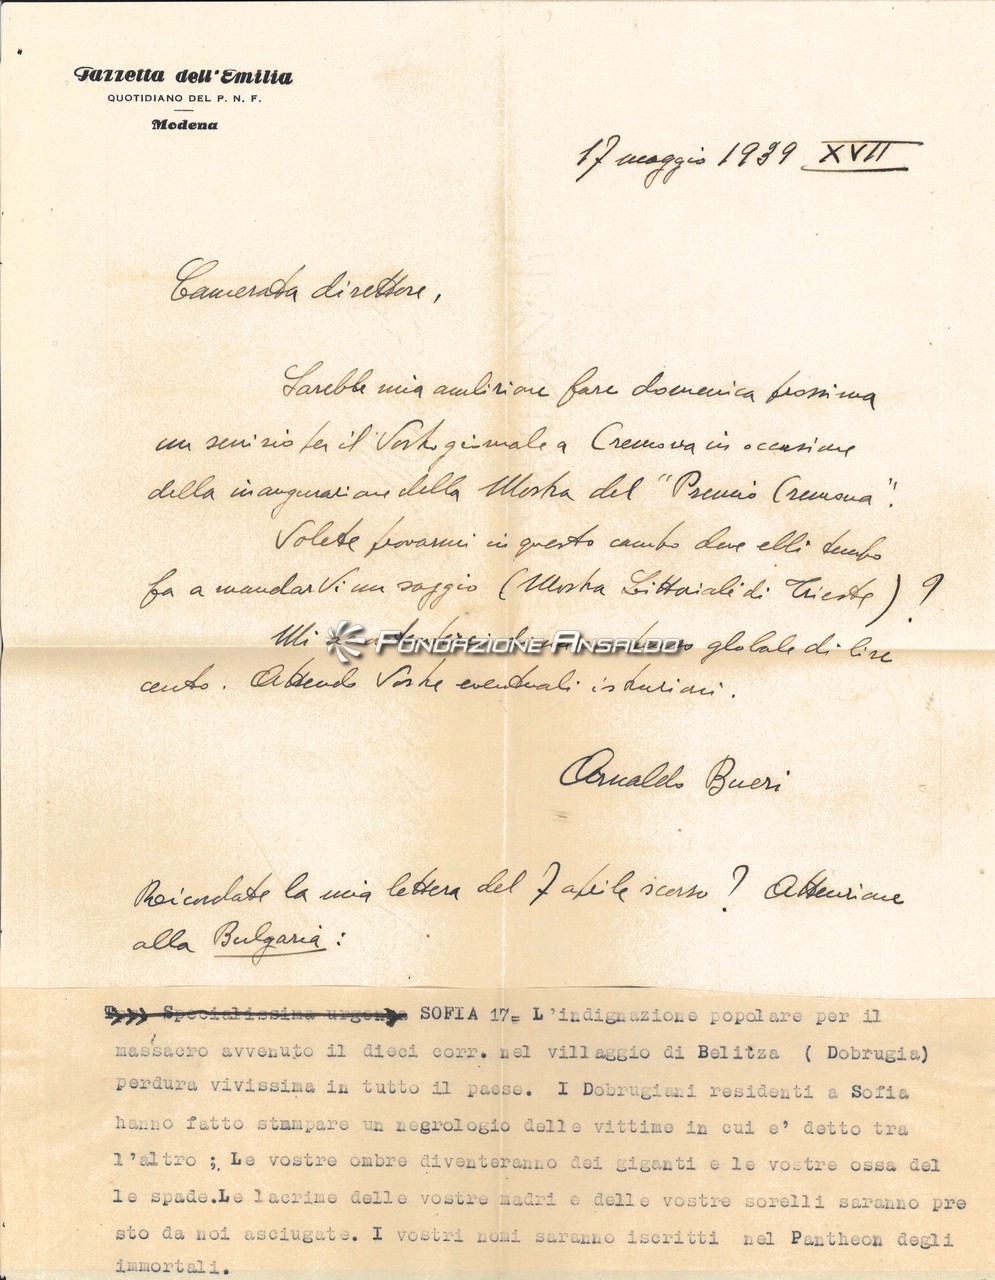 Gazzetta dell'Emilia
QUOTIDIANO DEL P. N. F.
Modena
17 maggio 1939 XVII
Camerata direttore,
Sarebbe mia ambizione fare domenica prossima
un servizio per il Vostro giornale a Cremona in occasione
della inaugurazione della Mostra del "Premio Cremona".
Volete provarmi in questo campo dove ebbi tempo
fa a mandarVi un saggio (Mostra Littoriali di Trieste) ?
Mi globale di lire
FONDAZIONE ANSALDO
cento. Attendo Vostre eventuali istruzioni.
Arnaldo Bueri
Ricordate la mia lettera del 7 aprile scorso? Attenzione
alla Bulgaria:
Specialissima urgenza SOFIA 17= L'indignazione popolare per il
massacro avvenuto il dieci corr. nel villaggio di Belitza ( Dobrugia)
perdura vivissima in tutto il paese. I Dobrugiani residenti a Sofia
hanno fatto stampare un negrologio delle vittime in cui e' detto tra
l'altro ; Le vostre ombre diventeranno dei giganti e le vostre ossa del
le spade.Le lacrime delle vostre madri e delle vostre sorelli saranno pre
sto da noi asciugate. I vostri nomi saranno iscritti nel Pantheon degli
immortali.